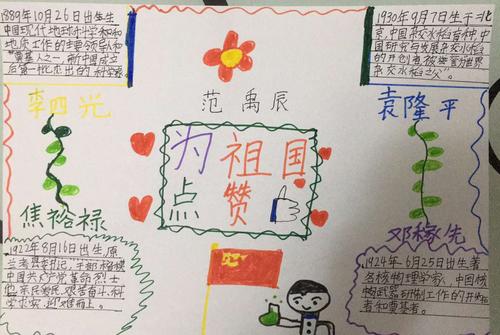 1889年10月26日出生
中国现代地球科学和和
地质工作的主要领导人和
奠基人之一，新中国成立
后第一批杰出的科学家
李四光
范禹辰
1930年9月7日生于北
京，中国杂交水稻育种
中国研究与发展杂交水稻
的开创者，被誉为世界
杂交水稻之父。
袁隆平
为祖国
点赞
焦裕禄
1922年8月16日出生原
兰考县书记，干部楷模
中国共产党革命烈士
他亲民爱民，艰苦奋斗，科
学求实，迎难而上。
邓稼先
1924年6月25日出生著
名核物理学家，中国核
武器研制工作的开拓
者和奠基者。